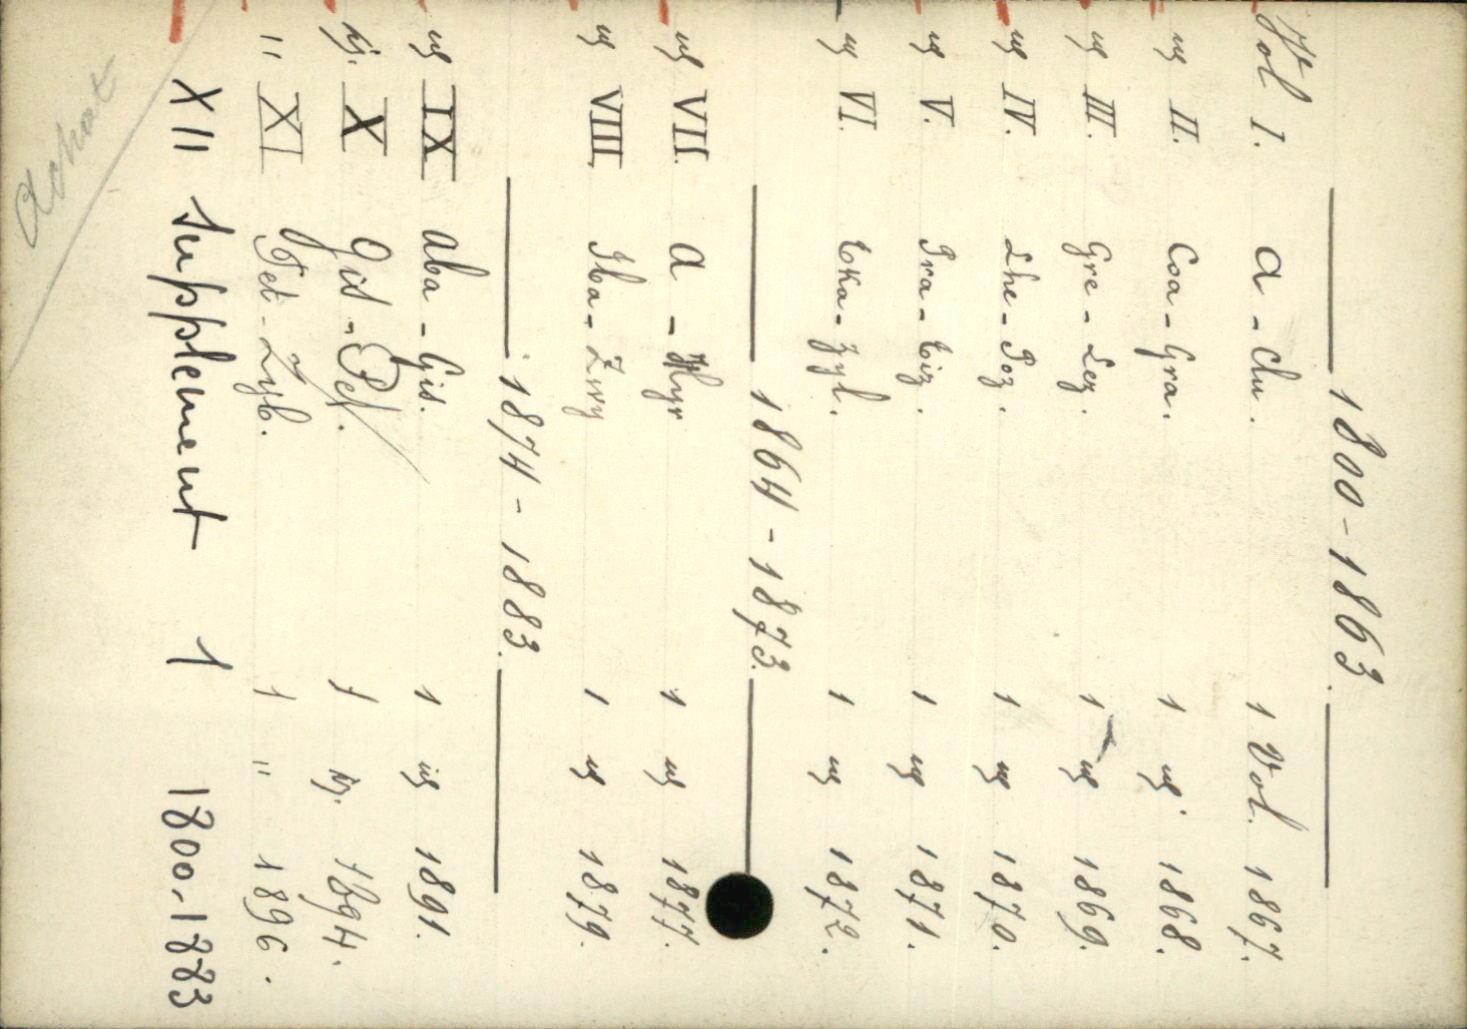 1800-1863.
Vol I. A - Clu. 1 Vol. 1867.
" II. Coa - Gra. 1 " 1868.
" III. Gre - Lez. 1 " 1869.
" IV. Lhe - Poz. 1 " 1870.
" V. Pra - Tiz. 1 " 1871.
" VI. Tka - Zyl. 1 " 1872.
1864 - 1873.
" VII. A - Hyr 1 " 1877.
" VIII. Iba - Zwy 1 " 1879.
1874 - 1883.
" IX Aba - Gis. 1 " 1891.
" X Git - Pet. 1 " 1894.
" XI Pet - Zyb. 1 " 1896.
XII Supplement 1 1800-1883